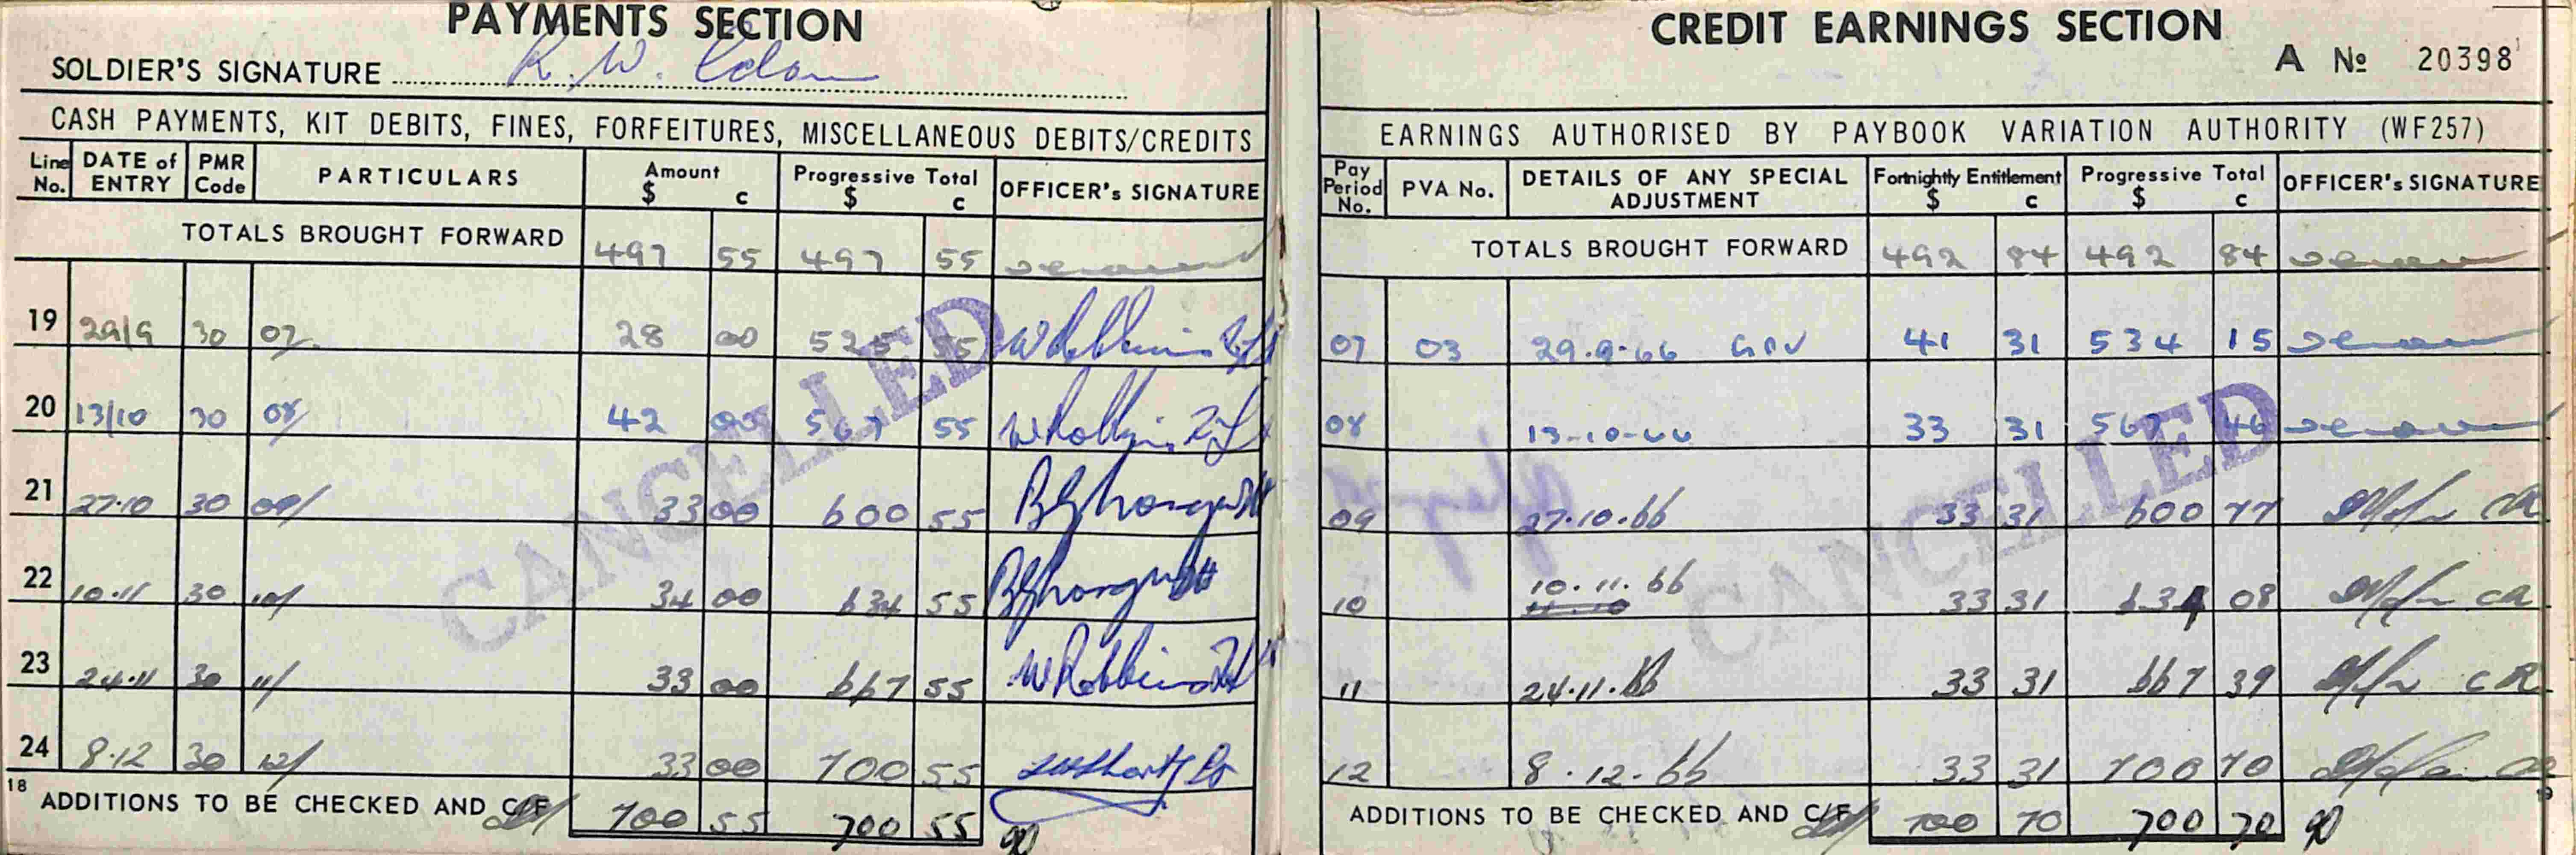 PAYMENTS SECTION
SOLDIER'S SIGNATURE R. W.
CASH PAYMENTS, KIT DEBITS, FINES, FORFEITURES, MISCELLANEOUS DEBITS/CREDITS
Line No. DATE of ENTRY PMR Code PARTICULARS Amount $ c Progressive Total $ c OFFICER's SIGNATURE
TOTALS BROUGHT FORWARD 497 55 497 55
19 29/9 30 07. 28 00 525 55 W Robbins
20 13/10 30 08/ 42 00 567 55 W Robbins
21 27.10 30 09/ 33 00 600 55
22 10.11 30 10/ 34 00 634 55
23 24.11 30 11/ 33 00 667 55 W Robbins
24 8.12 30 12/ 33 00 700 55
18 ADDITIONS TO BE CHECKED AND C/F 700 55 700 55
CANCELLED
CREDIT EARNINGS SECTION
A No 20398
EARNINGS AUTHORISED BY PAYBOOK VARIATION AUTHORITY (WF257)
Pay Period No. PVA No. DETAILS OF ANY SPECIAL ADJUSTMENT Fortnightly Entitlement $ c Progressive Total $ c OFFICER's SIGNATURE
TOTALS BROUGHT FORWARD 492 84 492 84
07 03 29.9.66 41 31 534 15
08 13-10-66 33 31 567 46
09 27.10.66 33 31 600 77
10 10.11.66 33 31 634 08
11 24.11.66 33 31 667 39
12 8.12.66 33 31 700 70
ADDITIONS TO BE CHECKED AND C/F 700 70 700 70
19
CANCELLED